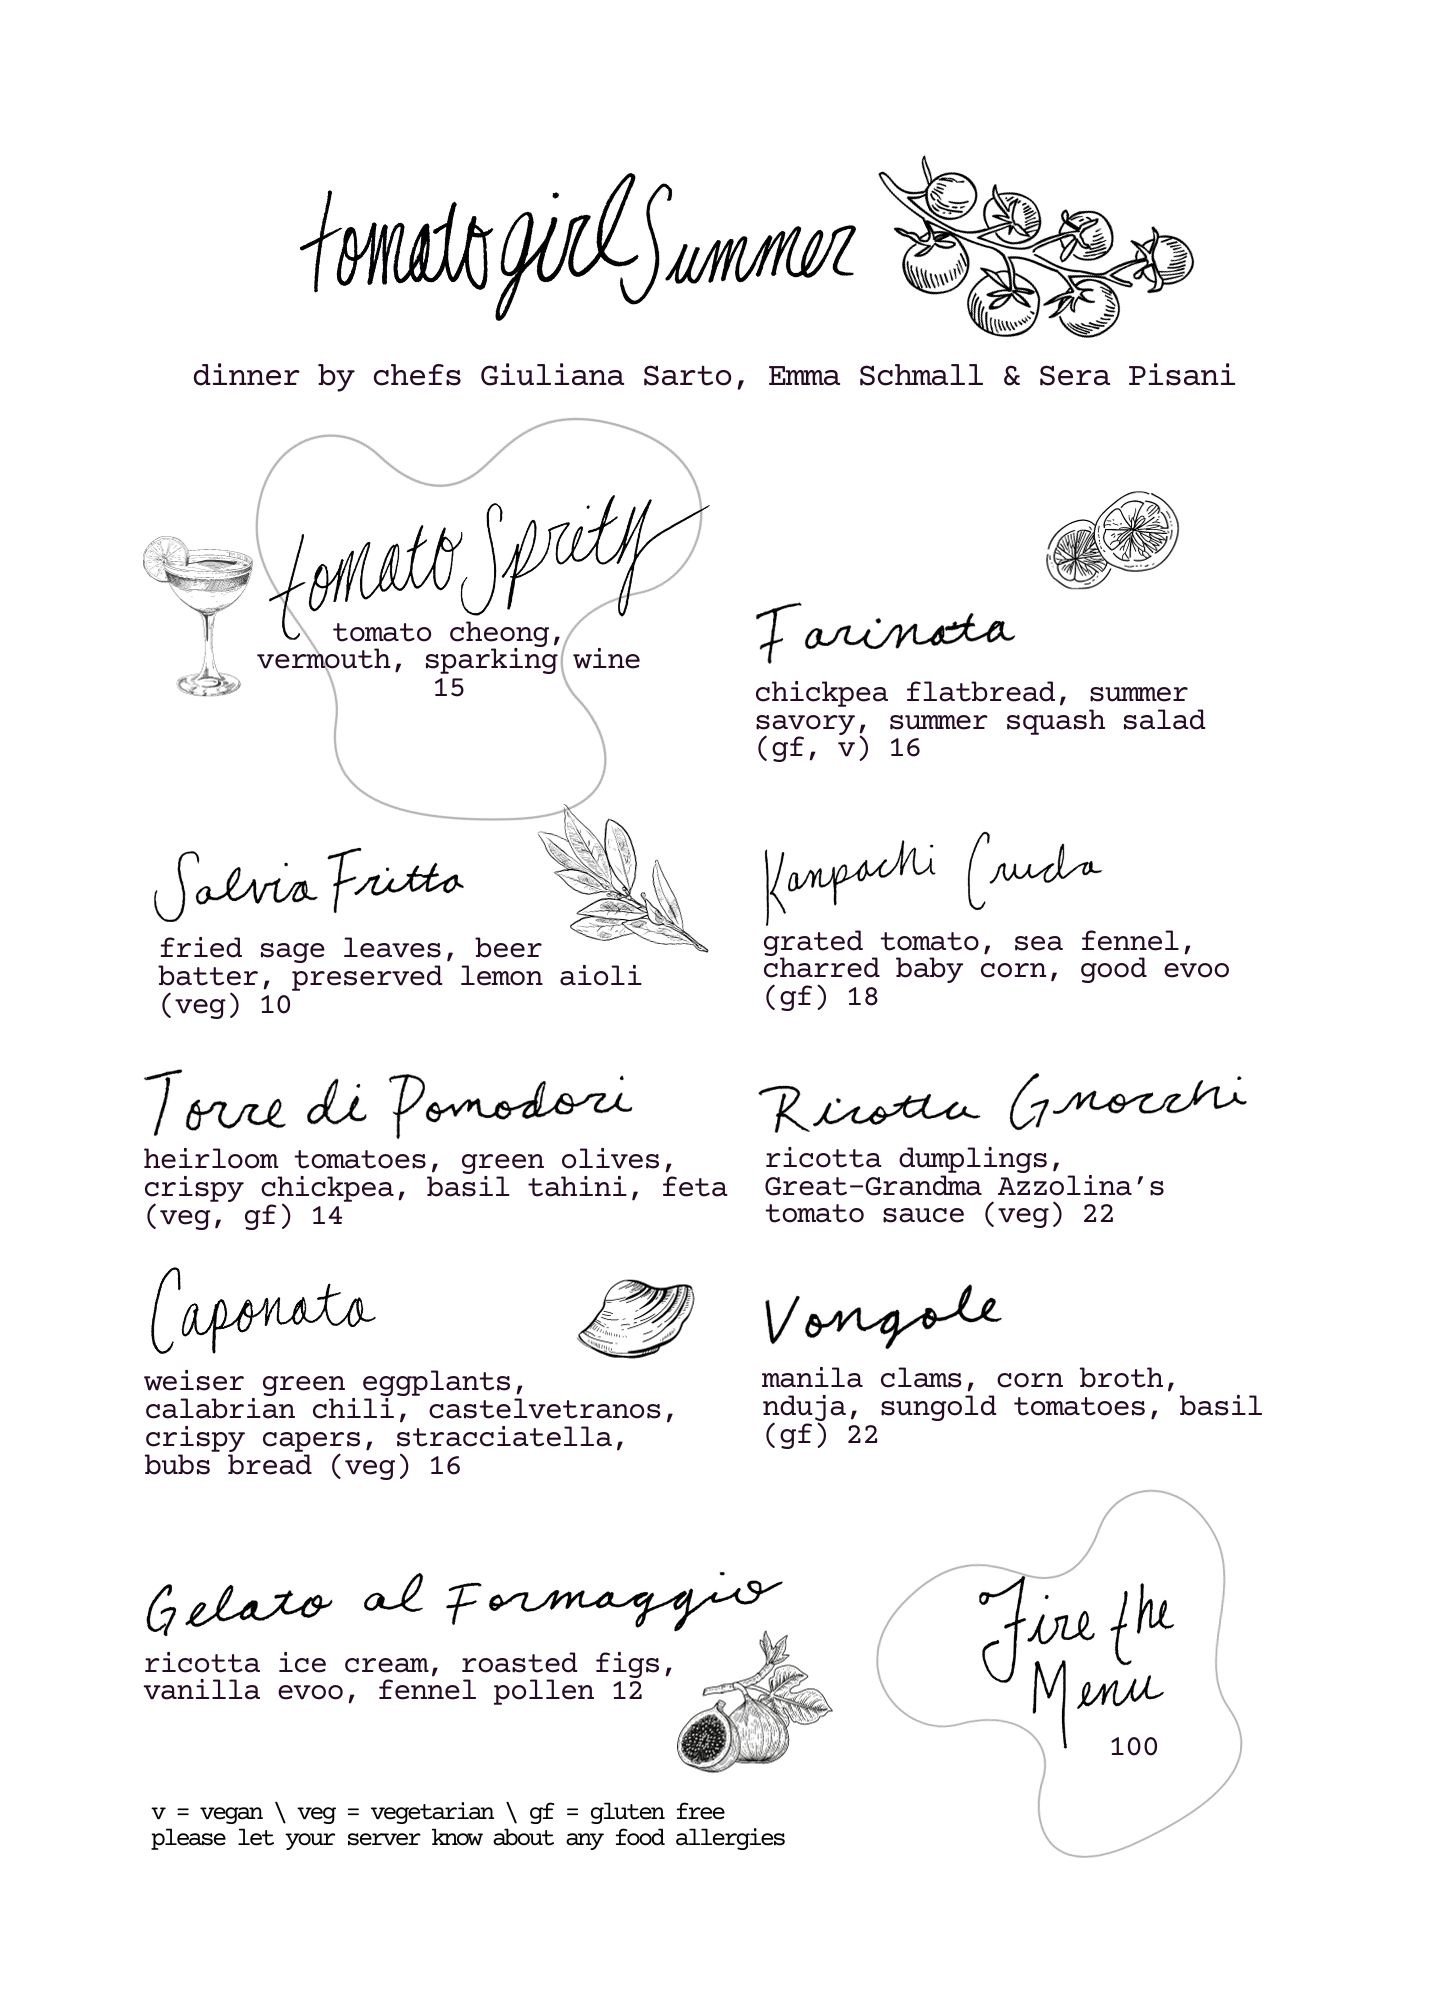 tomato girl Summer
dinner by chefs Giuliana Sarto, Emma Schmall & Sera Pisani
tomato Spritz
tomato cheong,
vermouth, sparking wine
15
Farinata
chickpea flatbread, summer
savory, summer squash salad
(gf, v) 16
Salvia Fritta
fried sage leaves, beer
batter, preserved lemon aioli
(veg) 10
Kanpachi Cruda
grated tomato, sea fennel,
charred baby corn, good evoo
(gf) 18
Torre di Pomodori
heirloom tomatoes, green olives,
crispy chickpea, basil tahini, feta
(veg, gf) 14
Ricotta Gnocchi
ricotta dumplings,
Great-Grandma Azzolina’s
tomato sauce (veg) 22
Caponata
weiser green eggplants,
calabrian chili, castelvetranos,
crispy capers, stracciatella,
bubs bread (veg) 16
Vongole
manila clams, corn broth,
nduja, sungold tomatoes, basil
(gf) 22
Gelato al Formaggio
ricotta ice cream, roasted figs,
vanilla evoo, fennel pollen 12
Fire the
Menu
100
v = vegan \ veg = vegetarian \ gf = gluten free
please let your server know about any food allergies